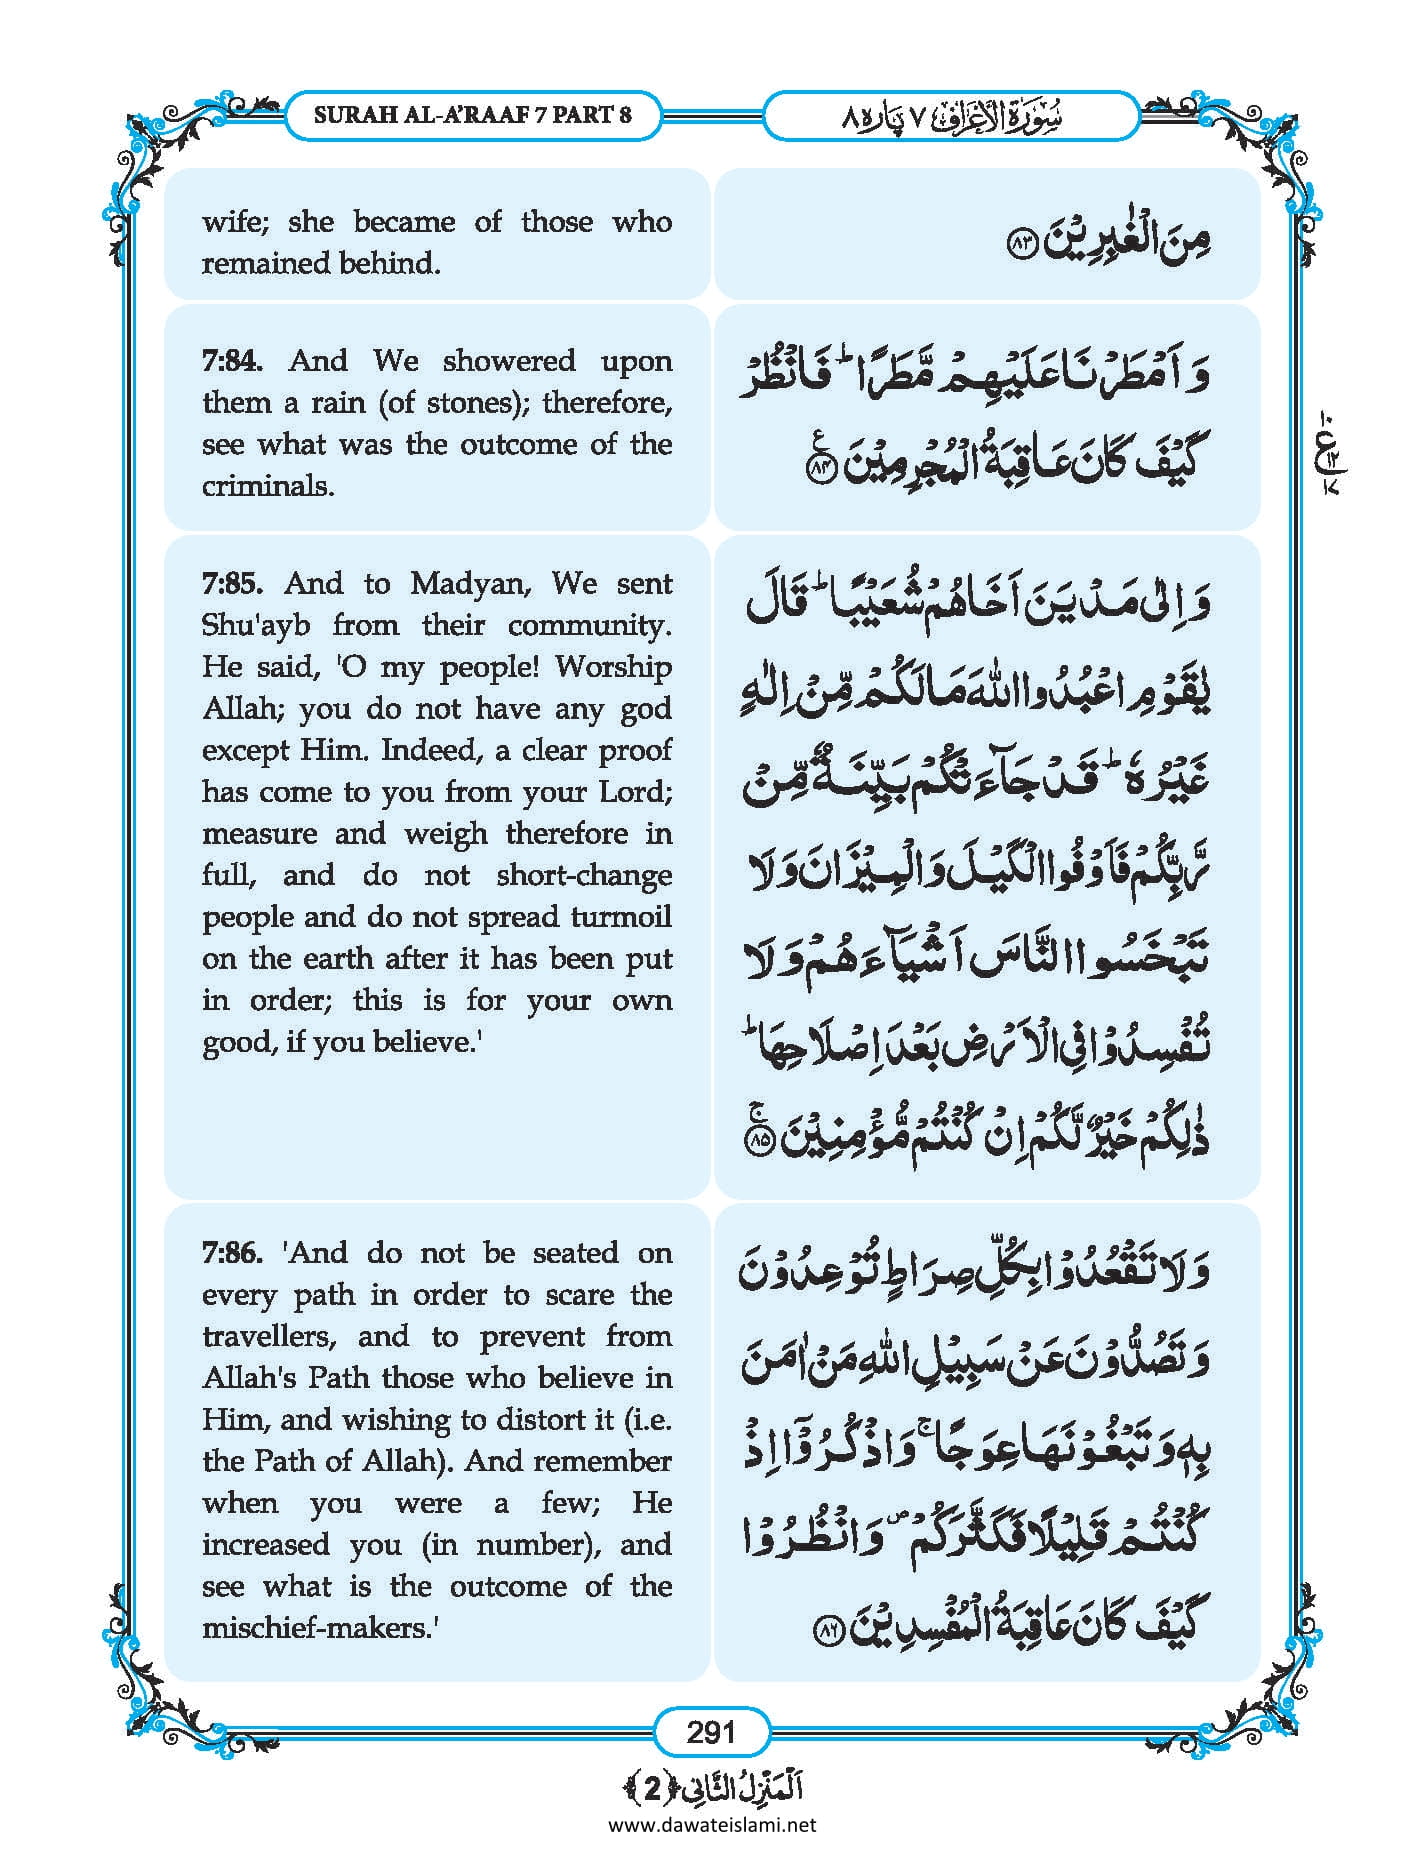 SURAH AL-A’RAAF 7 PART 8
سُوْرَةُ الْاَعْرَاف ٧ پاره ٨
wife; she became of those who
remained behind.
مِنَ الْغٰبِرِيْنَ ﴿٨٣﴾
7:84. And We showered upon
them a rain (of stones); therefore,
see what was the outcome of the
criminals.
وَ اَمْطَرْنَا عَلَيْهِمْ مَّطَرًا ؕ فَانْظُرْ
كَيْفَ كَانَ عَاقِبَةُ الْمُجْرِمِيْنَ ﴿٨٤﴾ ع
7:85. And to Madyan, We sent
Shu'ayb from their community.
He said, 'O my people! Worship
Allah; you do not have any god
except Him. Indeed, a clear proof
has come to you from your Lord;
measure and weigh therefore in
full, and do not short-change
people and do not spread turmoil
on the earth after it has been put
in order; this is for your own
good, if you believe.'
وَ اِلٰى مَدْيَنَ اَخَاهُمْ شُعَيْبًا ؕ قَالَ
يٰقَوْمِ اعْبُدُوا اللّٰهَ مَا لَكُمْ مِّنْ اِلٰهٍ
غَيْرُهٗ ؕ قَدْ جَآءَتْكُمْ بَيِّنَةٌ مِّنْ
رَّبِّكُمْ فَاَوْفُوا الْكَيْلَ وَ الْمِيْزَانَ وَ لَا
تَبْخَسُوا النَّاسَ اَشْيَآءَهُمْ وَ لَا
تُفْسِدُوْا فِى الْاَرْضِ بَعْدَ اِصْلَاحِهَا ؕ
ذٰلِكُمْ خَيْرٌ لَّكُمْ اِنْ كُنْتُمْ مُّؤْمِنِيْنَ ﴿٨٥﴾ ۚ
7:86. 'And do not be seated on
every path in order to scare the
travellers, and to prevent from
Allah's Path those who believe in
Him, and wishing to distort it (i.e.
the Path of Allah). And remember
when you were a few; He
increased you (in number), and
see what is the outcome of the
mischief-makers.'
وَ لَا تَقْعُدُوْا بِكُلِّ صِرَاطٍ تُوْعِدُوْنَ
وَ تَصُدُّوْنَ عَنْ سَبِيْلِ اللّٰهِ مَنْ اٰمَنَ
بِهٖ وَ تَبْغُوْنَهَا عِوَجًا ۚ وَ اذْكُرُوْۤا اِذْ
كُنْتُمْ قَلِيْلًا فَكَثَّرَكُمْ ۪ وَ انْظُرُوْا
كَيْفَ كَانَ عَاقِبَةُ الْمُفْسِدِيْنَ ﴿٨٦﴾
291
اَلْمَنْزِلُ الثَّانِى ﴿2﴾
www.dawateislami.net